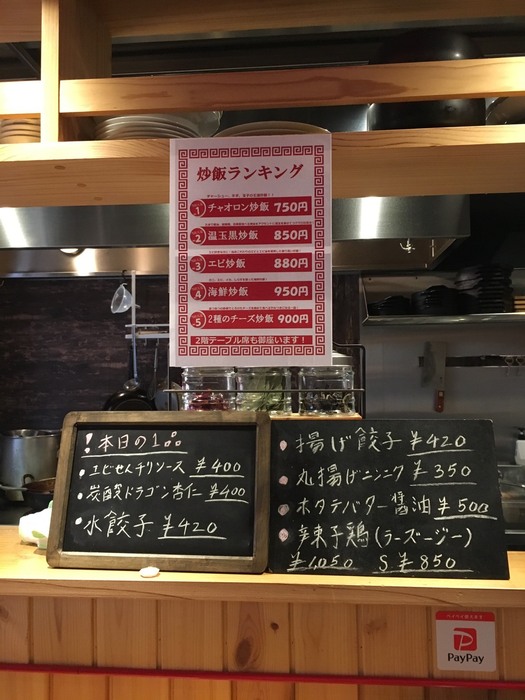 炒飯ランキング
1 チャオロン炒飯 750円
2 温玉黒炒飯 850円
3 エビ炒飯 880円
4 海鮮炒飯 950円
5 2種のチーズ炒飯 900円
2階テーブル席も御座います！
！本日の1品
・エビせんチリソース ¥400
・炭酸ドラゴン杏仁 ¥400
・水餃子 ¥420
・揚げ餃子 ¥420
・丸揚げニンニク ¥350
・ホタテバター醤油 ¥500
・辣子鶏(ラーズージー)
¥1,050 S ¥850
PayPay